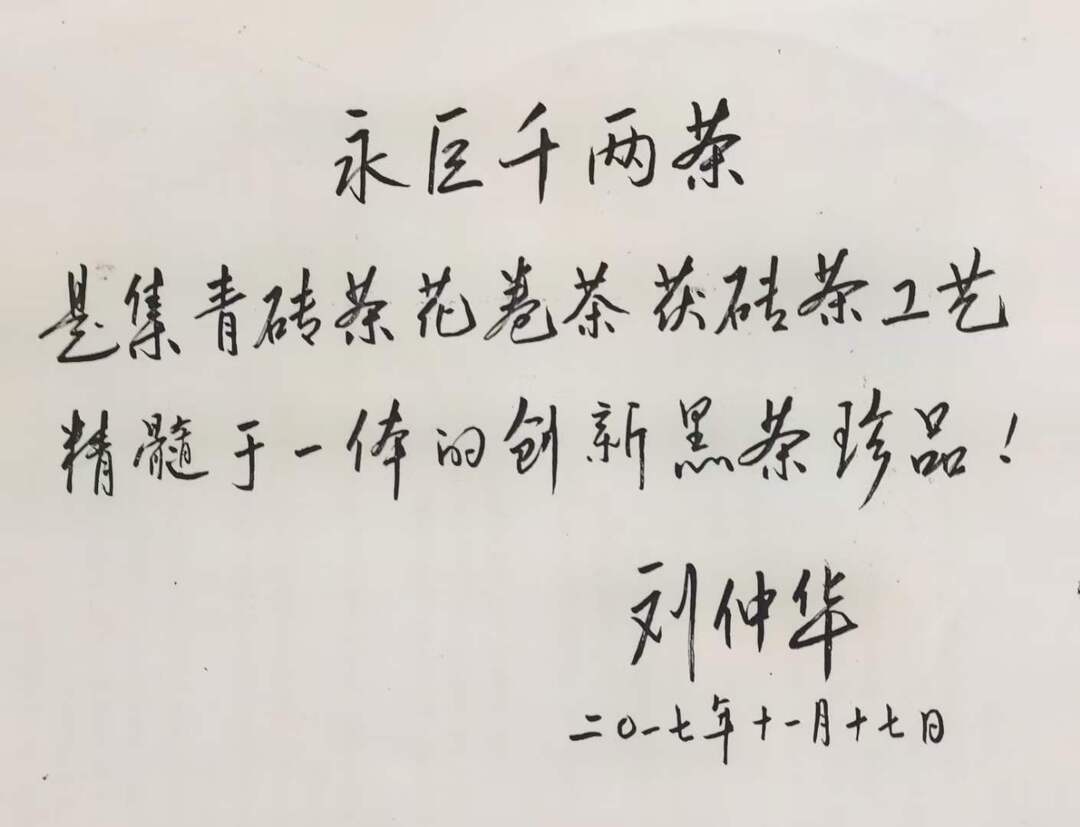 永巨千两茶
是集青砖茶花卷茶茯砖茶工艺
精髓于一体的创新黑茶珍品！
刘仲华
二〇一七年十一月十七日